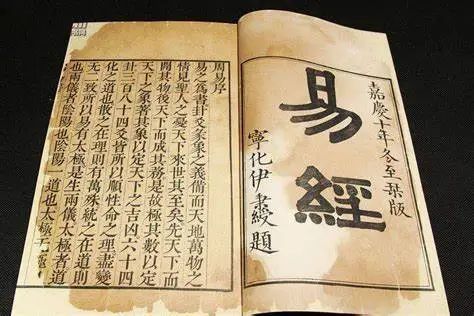 嘉慶十年冬至栞版
易經
寧化伊秉綬題
周易序
易之為書卦爻彖象之義備而天地萬物之
情見聖人之憂天下來世其至矣先天下而
開其物後天下而成其務是故極其數以定
天下之象著其象以定天下之吉凶六十四
卦三百八十四爻皆所以順性命之理盡變
化之道也散之在理則有萬殊統之在道則
無二致所以易有太極是生兩儀太極者道
也兩儀者陰陽也陰陽一道也太極無